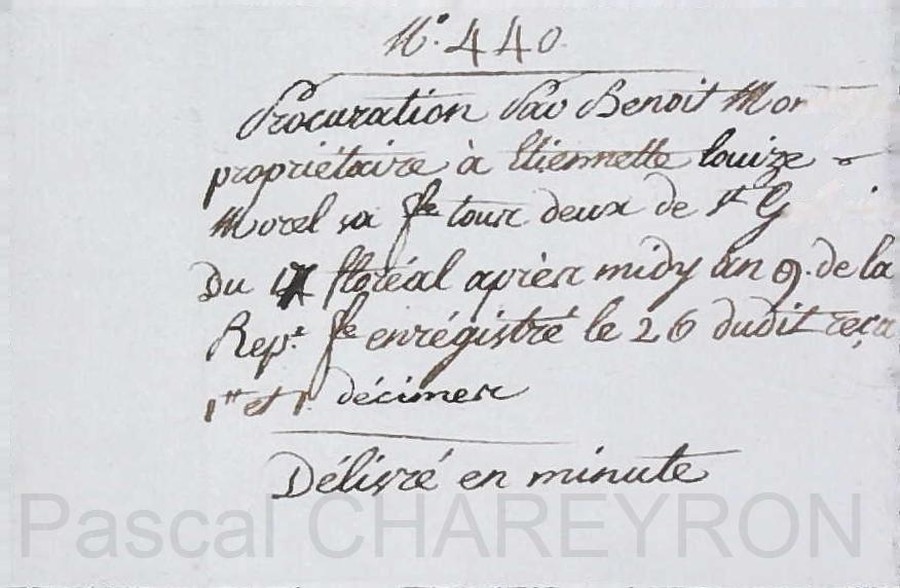 N.° 440.
Procuration Par Benoit Mor
propriétaire à Etiennette Louize
Morel sa fe tous deux de St G
Du floréal après midy an 9. de la
Rep.e fe enrégistré le 26 dudit reçu
1tt et 1. décimes
Délivré en minute
Pascal CHAREYRON